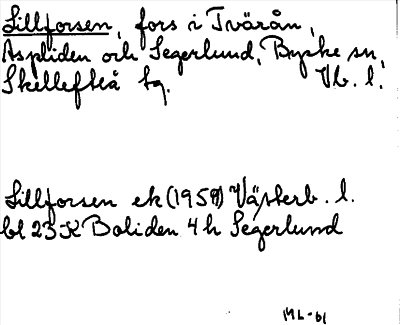 Lillforsen, fors i Tvärån,
Aspliden och Segerlund, Byske sn,
Skellefteå tg. Vb. l.
Lillforsen ek (1959) Västerb. l.
bl 23 K Boliden 4 h Segerlund
ML-61